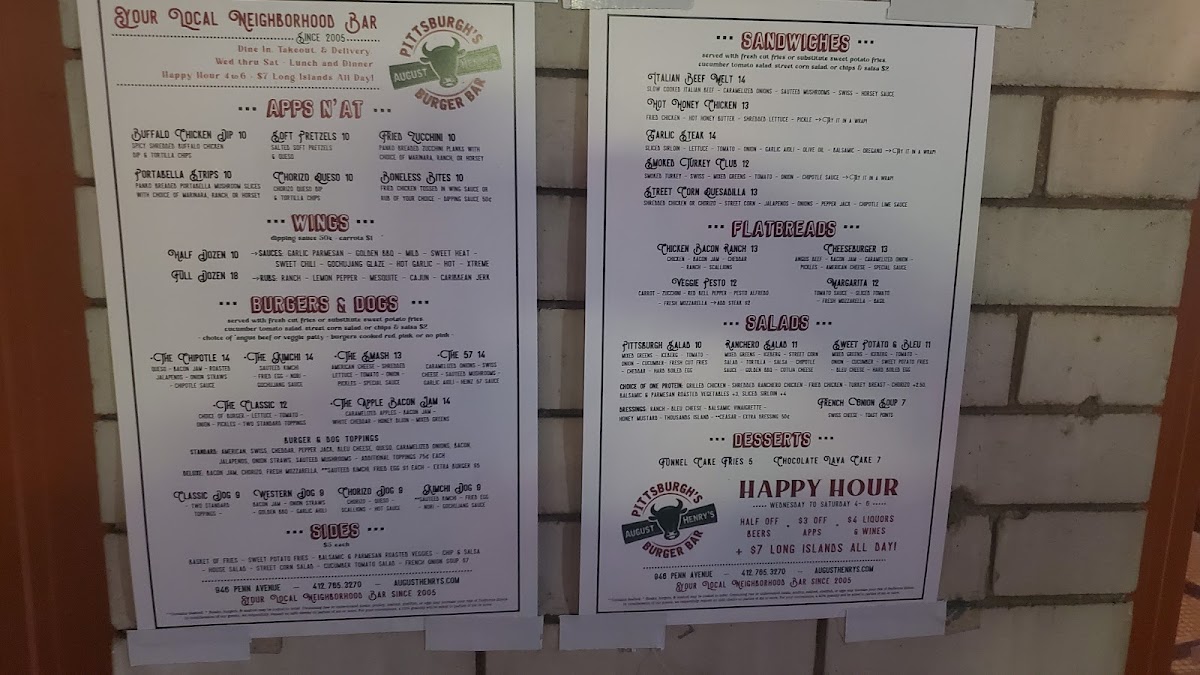 Your Local Neighborhood Bar
Since 2005
Dine In, Takeout, & Delivery
Wed thru Sat - Lunch and Dinner
Happy Hour 4 to 6 - $7 Long Islands All Day!
PITTSBURGH'S
AUGUST HENRY'S
BURGER BAR
APPS N'AT
Buffalo Chicken Dip 10
SPICY SHREDDED BUFFALO CHICKEN
DIP & TORTILLA CHIPS
Soft Pretzels 10
SALTED SOFT PRETZELS
& QUESO
Fried Zucchini 10
PANKO BREADED ZUCCHINI PLANKS WITH
CHOICE OF MARINARA, RANCH, OR HORSEY
Portabella Strips 10
PANKO BREADED PORTABELLA MUSHROOM SLICES
WITH CHOICE OF MARINARA, RANCH, OR HORSEY
Chorizo Queso 10
CHORIZO QUESO DIP
& TORTILLA CHIPS
Boneless Bites 10
FRIED CHICKEN TOSSED IN WING SAUCE OR
RUB OF YOUR CHOICE - DIPPING SAUCE 50¢
WINGS
dipping sauce 50¢ - carrots $1
Half Dozen 10
Full Dozen 18
→SAUCES: GARLIC PARMESAN - GOLDEN BBQ - MILD - SWEET HEAT -
SWEET CHILI - GOCHUJANG GLAZE - HOT GARLIC - HOT - XTREME
→RUBS: RANCH - LEMON PEPPER - MESQUITE - CAJUN - CARIBBEAN JERK
BURGERS & DOGS
served with fresh cut fries or substitute sweet potato fries,
cucumber tomato salad, street corn salad, or chips & salsa $2
- choice of angus beef or veggie patty - burgers cooked red, pink, or no pink -
-The Chipotle 14
QUESO - BACON JAM - ROASTED
JALAPENOS - ONION STRAWS
- CHIPOTLE SAUCE
-The Kimchi 14
SAUTEED KIMCHI
- FRIED EGG - NORI -
GOCHUJANG SAUCE
-The Smash 13
AMERICAN CHEESE - SHREDDED
LETTUCE - TOMATO - ONION -
PICKLES - SPECIAL SAUCE
-The 57 14
CARAMELIZED ONIONS - SWISS
CHEESE - SAUTEED MUSHROOMS -
GARLIC AIOLI - HEINZ 57 SAUCE
-The Classic 12
CHOICE OF BURGER - LETTUCE - TOMATO -
ONION - PICKLES - TWO STANDARD TOPPINGS
-The Apple Bacon Jam 14
CARAMELIZED APPLES - BACON JAM -
WHITE CHEDDAR - HONEY DIJON - MIXED GREENS
BURGER & DOG TOPPINGS
STANDARD: AMERICAN, SWISS, CHEDDAR, PEPPER JACK, BLEU CHEESE, QUESO, CARAMELIZED ONIONS, BACON,
JALAPENOS, ONION STRAWS, SAUTEED MUSHROOMS - ADDITIONAL TOPPINGS 75¢ EACH
DELUXE: BACON JAM, CHORIZO, FRESH MOZZARELLA, **SAUTEED KIMCHI, FRIED EGG $1 EACH - EXTRA BURGER $5
Classic Dog 9
- TWO STANDARD
TOPPINGS -
Western Dog 9
BACON JAM - ONION STRAWS
- GOLDEN BBQ - GARLIC AIOLI
Chorizo Dog 9
CHORIZO - QUESO -
SCALLIONS - HOT SAUCE
Kimchi Dog 9
**SAUTEED KIMCHI - FRIED EGG
- NORI - GOCHUJANG SAUCE
SIDES
$5 each
BASKET OF FRIES - SWEET POTATO FRIES - BALSAMIC & PARMESAN ROASTED VEGGIES - CHIP & SALSA
- HOUSE SALAD - STREET CORN SALAD - CUCUMBER TOMATO SALAD - FRENCH ONION SOUP $7
946 PENN AVENUE — 412.765.3270 — AUGUSTHENRYS.COM
Your Local Neighborhood Bar Since 2005
SANDWICHES
served with fresh cut fries or substitute sweet potato fries,
cucumber tomato salad, street corn salad, or chips & salsa $2
Italian Beef Melt 14
SLOW COOKED ITALIAN BEEF - CARAMELIZED ONIONS - SAUTEED MUSHROOMS - SWISS - HORSEY SAUCE
Hot Honey Chicken 13
FRIED CHICKEN - HOT HONEY BUTTER - SHREDDED LETTUCE - PICKLE →TRY IT IN A WRAP!
Garlic Steak 14
SLICED SIRLOIN - LETTUCE - TOMATO - ONION - GARLIC AIOLI - OLIVE OIL - BALSAMIC - OREGANO →TRY IT IN A WRAP!
Smoked Turkey Club 12
SMOKED TURKEY - SWISS - MIXED GREENS - TOMATO - ONION - CHIPOTLE SAUCE →TRY IT IN A WRAP!
Street Corn Quesadilla 13
SHREDDED CHICKEN OR CHORIZO - STREET CORN - JALAPENOS - ONIONS - PEPPER JACK - CHIPOTLE LIME SAUCE
FLATBREADS
Chicken Bacon Ranch 13
CHICKEN - BACON JAM - CHEDDAR
- RANCH - SCALLIONS
Cheeseburger 13
ANGUS BEEF - BACON JAM - CARAMELIZED ONION -
PICKLES - AMERICAN CHEESE - SPECIAL SAUCE
Veggie Pesto 12
CARROT - ZUCCHINI - RED BELL PEPPER - PESTO ALFREDO
- FRESH MOZZARELLA →ADD STEAK $2
Margarita 12
TOMATO SAUCE - SLICED TOMATO
- FRESH MOZZARELLA - BASIL
SALADS
Pittsburgh Salad 10
MIXED GREENS - ICEBERG - TOMATO -
ONION - CUCUMBER - FRESH CUT FRIES
- CHEDDAR - HARD BOILED EGG
Ranchero Salad 11
MIXED GREENS - ICEBERG - STREET CORN
SALAD - TORTILLA - SALSA - CHIPOTLE
SAUCE - GOLDEN BBQ - COTIJA CHEESE
Sweet Potato & Bleu 11
MIXED GREENS - ICEBERG - TOMATO -
ONION - CUCUMBER - SWEET POTATO FRIES
- BLEU CHEESE - HARD BOILED EGG
CHOICE OF ONE PROTEIN: GRILLED CHICKEN - SHREDDED RANCHERO CHICKEN - FRIED CHICKEN - TURKEY BREAST - CHORIZO +2.50
BALSAMIC & PARMESAN ROASTED VEGETABLES +3, SLICED SIRLOIN +4
DRESSINGS: RANCH - BLEU CHEESE - BALSAMIC VINAIGRETTE -
HONEY MUSTARD - THOUSANDS ISLAND - **CEASAR - EXTRA DRESSING 50¢
French Onion Soup 7
SWISS CHEESE - TOAST POINTS
DESSERTS
Funnel Cake Fries 5
Chocolate Lava Cake 7
PITTSBURGH'S
AUGUST HENRY'S
BURGER BAR
HAPPY HOUR
WEDNESDAY TO SATURDAY 4-6
HALF OFF BEERS
$3 OFF APPS
$4 LIQUORS & WINES
+ $7 LONG ISLANDS ALL DAY!
946 PENN AVENUE — 412.765.3270 — AUGUSTHENRYS.COM
Your Local Neighborhood Bar Since 2005